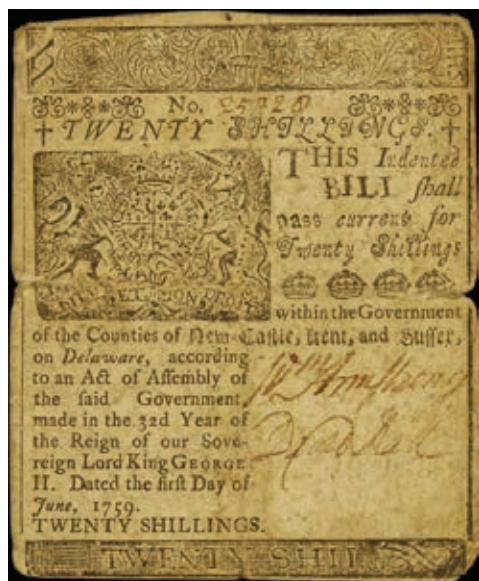 No.
TWENTY SHILLINGS.
THIS Indented
BILL shall
pass current for
Twenty Shillings
within the Government
of the Counties of New-Castle, Kent, and Sussex,
on Delaware, according
to an Act of Assembly of
the said Government,
made in the 32d Year of
the Reign of our Sove-
reign Lord King GEORGE
II. Dated the first Day of
June, 1759.
TWENTY SHILLINGS.
Wm Armstrong
TWENTY SHIL